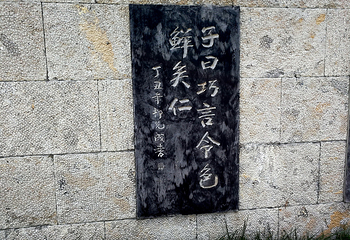 子曰巧言令色
鲜矣仁
丁丑年